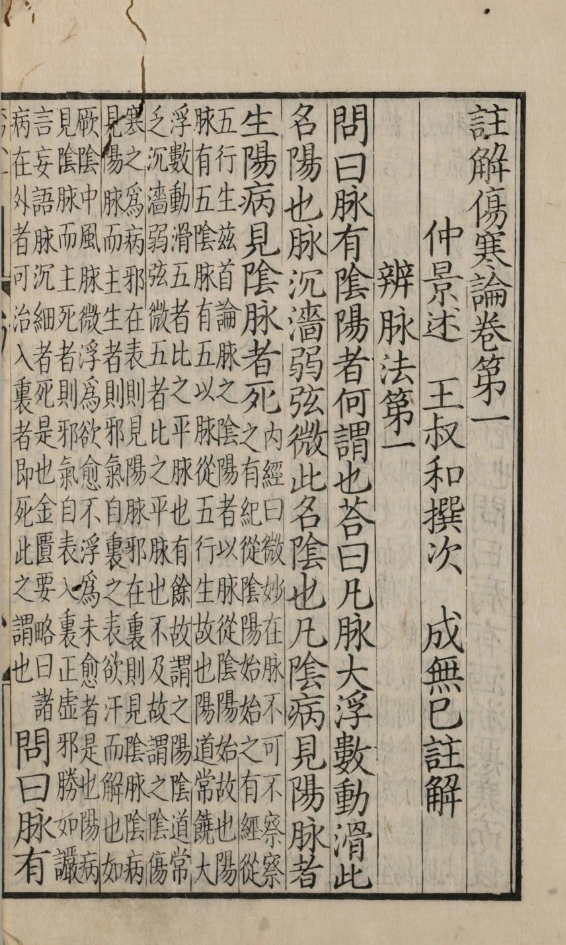 註解傷寒論卷第一
仲景述　王叔和撰次　成無已註解
辨脉法第一
問曰脉有陰陽者何謂也荅曰凡脉大浮數動滑此
名陽也脉沉濇弱弦微此名陰也凡陰病見陽脉者
生陽病見陰脉者死
内經曰微妙在脉不可不察察
之有紀從陰陽始始之有經從
五行生茲首論脉之陰陽者以脉從陰陽始故也陽
脉有五陰脉有五以脉從五行生故也陽道常饒大
浮數動滑五者比之平脉也有餘故謂之陽陰道常
乏沉濇弱弦微五者比之平脉也不及故謂之陰傷
寒之爲病邪在表則見陽脉邪在裏則見陰脉陰病
見陽脉而主生者則邪氣自裏之表欲汗而解也如
厥陰中風脉微浮爲欲愈不浮爲未愈者是也陽病
見陰脉而主死者則邪氣自表入裏正虛邪勝如讝
言妄語脉沉細者死是也金匱要略曰諸
病在外者可治入裏者即死此之謂也
問曰脉有